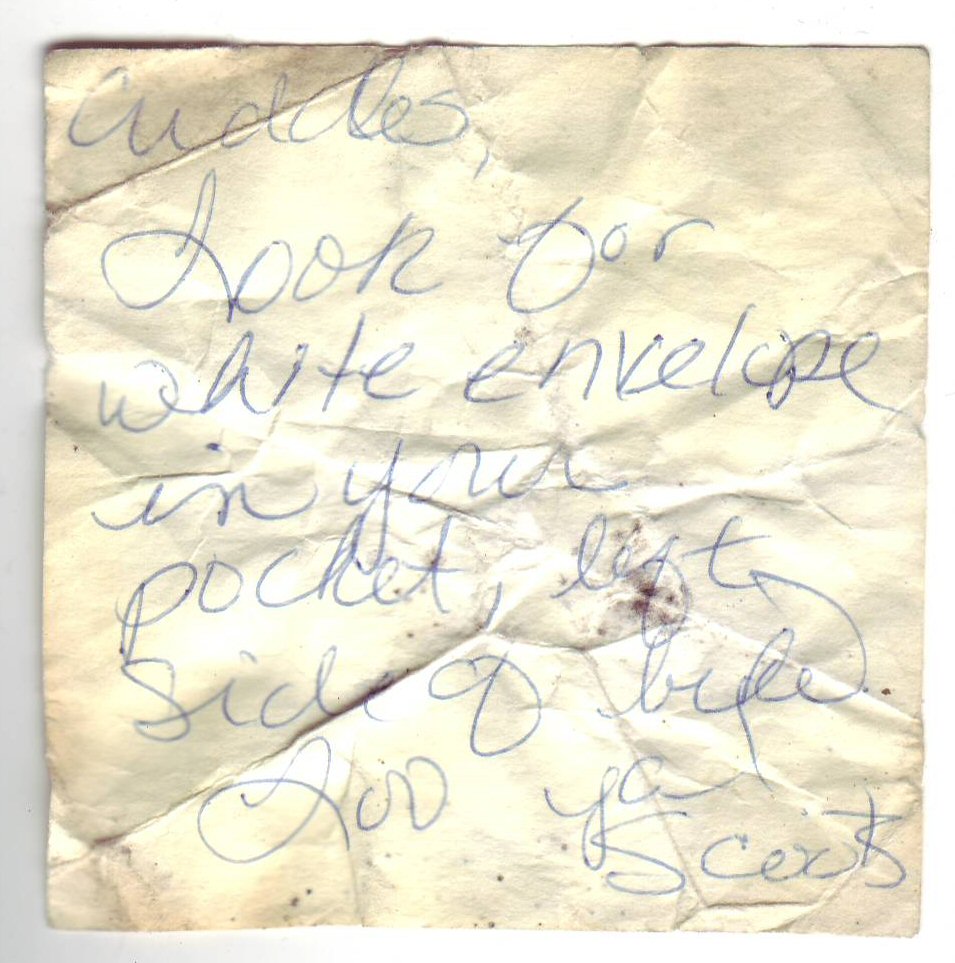 Cuddles,
Look for
white envelope
in your
pocket, left
side of
Luv ya
Scott